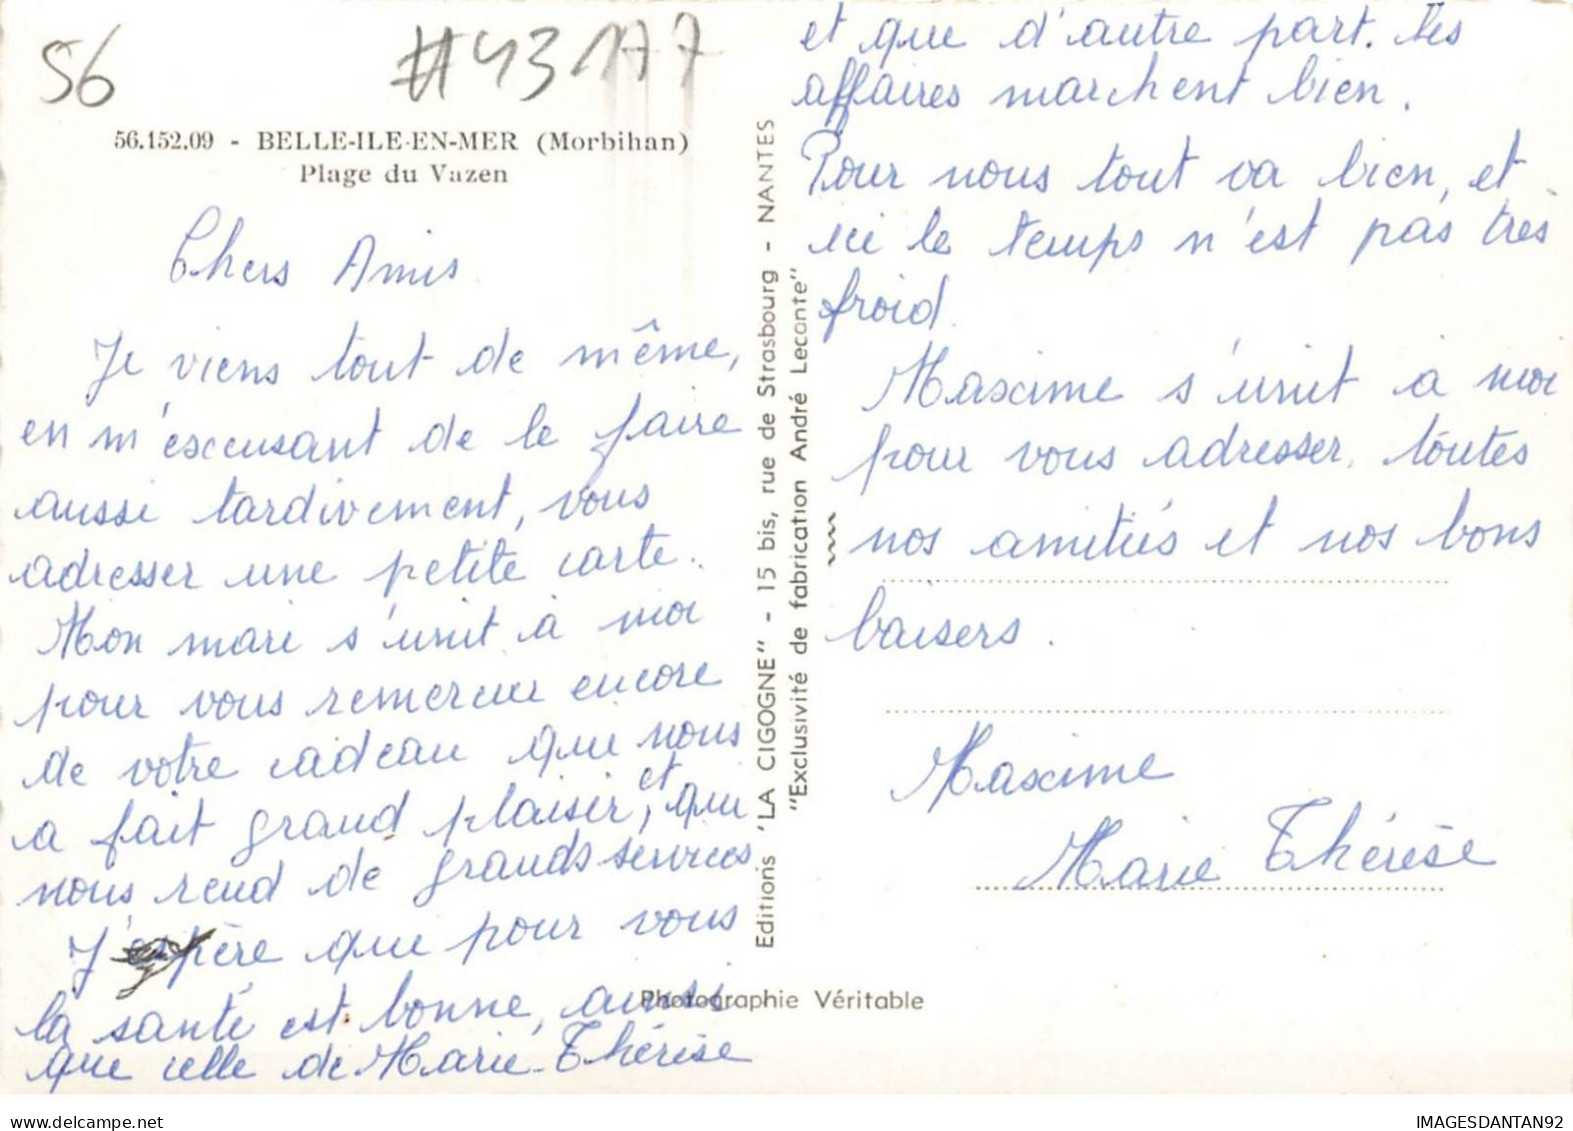 56
#43177
56.152.09 - BELLE-ILE-EN-MER (Morbihan)
Plage du Vazen
Chers Amis
Je viens tout de même,
en m'excusant de le faire
aussi tardivement, vous
adresser une petite carte.
Mon mari s'unit à moi
pour vous remercier encore
de votre cadeau qui nous
a fait grand plaisir, et qui
nous rend de grands services
J'espère que pour vous
la santé est bonne, ainsi
que celle de Marie-Thérèse
Editions "LA CIGOGNE" - 15 bis, rue de Strasbourg - NANTES
"Exclusivité de fabrication André Leconte"
Photographie Véritable
et que d'autre part. les
affaires marchent bien.
Pour nous tout va bien, et
ici le temps n'est pas très
froid.
Maxime s'unit à moi
pour vous adresser, toutes
nos amitiés et nos bons
baisers.
Maxime
Marie Thérèse
IMAGESDANTAN92